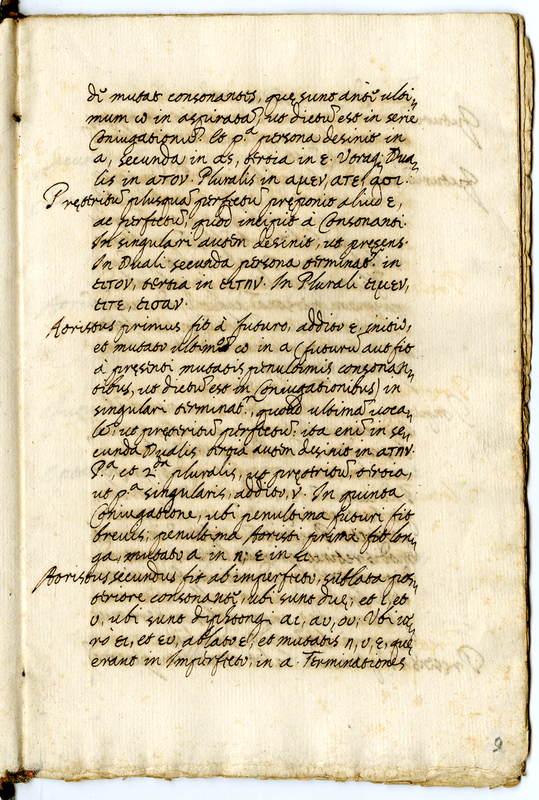 di mutat consonantes, quę sunt ante ulti,,
mum ω in aspiratā, ut dictū est in serie
Coniugationū. Et pª persona desinit in
α, secunda in ας, tertia in ε. Utraq; Dua,,
lis in ατον. Pluralis in αμεν, ατε, ασι.
Pręteritū plusquā perfectū pręponit aliud ε,
ac perfectū, quod incipit à Consonanti.
In singulari autem desinit, ut pręsens.
In Duali secunda persona terminat.r in
ειτον, tertia in ειτην. In Plurali ειμεν,
ειτε, εισαν.
Aoristus primus fit à futuro, addito ε, initio,
et mutato ultimo ω in α (futurū aut fit
à pręsenti mutatis penultimis consonan,,
tibus, ut dictū est in Coniugationibus) in
singulari terminat.r, quoad ultimā uoca,,
lē, ut pręteritū perfectū: ita enī in se,,
cunda Dualis, tertia autem desinit in ατην.
Pª, et 2ª pluralis, ut pręteritū, tertia,
ut pª singularis, addito, ν. In quinta
Coniugatione, ubi penultima futuri fit
breuis; penultima Aoristi primi fit lon,,
ga, mutato α in η; ε in ει.
Aoristus secundus fit ab imperfecto, sublata pos,,
teriore consonanti, ubi sunt duę; et ι, et
υ, ubi sunt diphtongi αι, αυ, ου; Ubi ue,,
ro ει, et ευ, ablato ε, et mutatis η, υ, ε, quę
erant in Imperfecto, in α. Terminationes
9